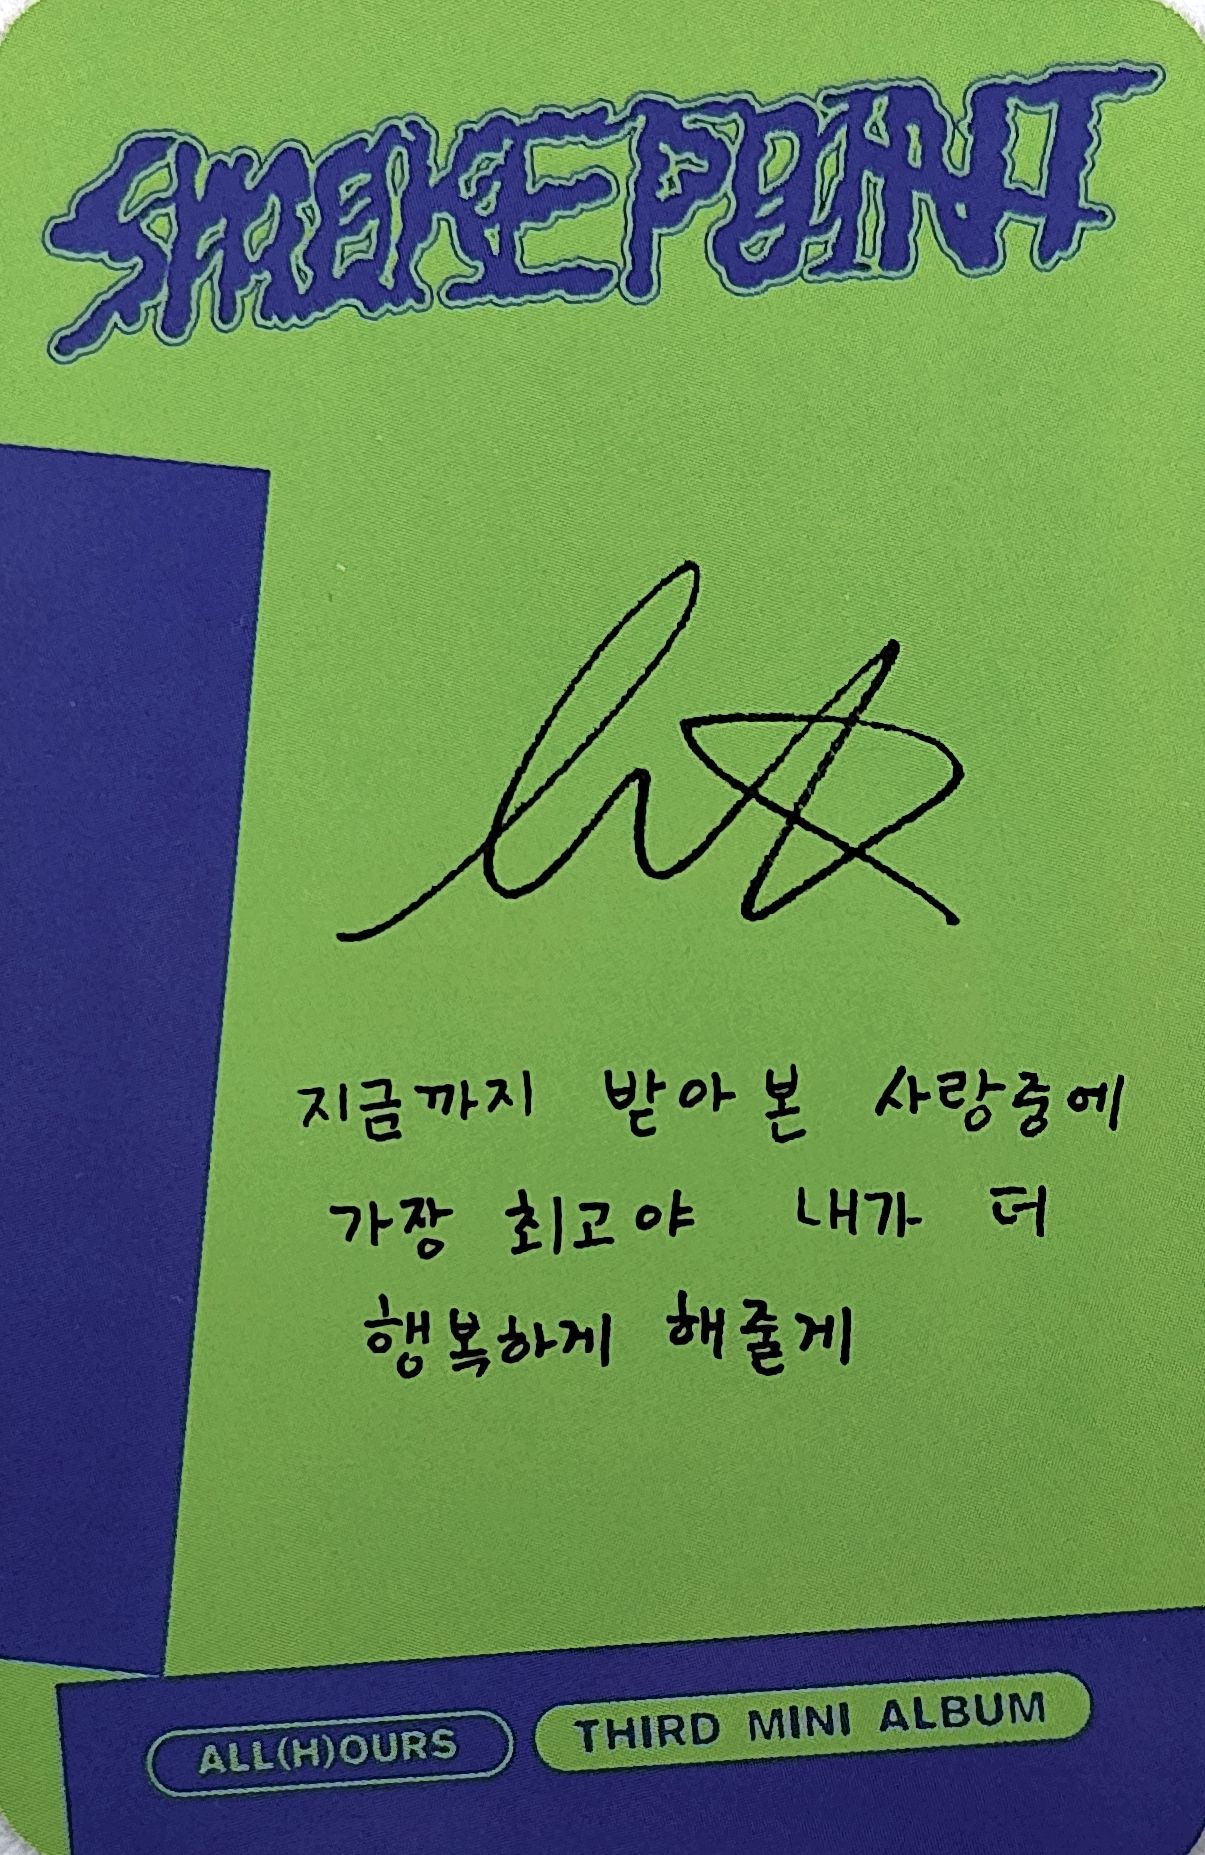 SMOKE POINT
지금까지 받아 본 사랑중에
가장 최고야 내가 더
행복하게 해줄게
ALL(H)OURS
THIRD MINI ALBUM